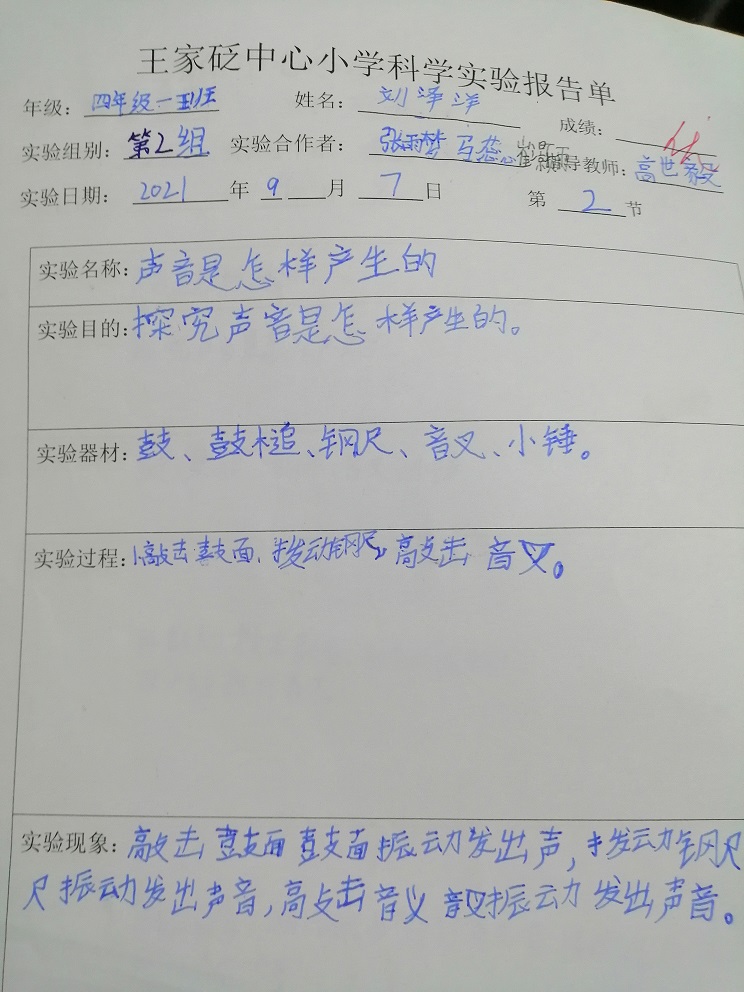 王家砭中心小学科学实验报告单
年级：四年级一班 姓名：刘泽洋 成绩：
实验组别：第2组 实验合作者：张雨梦 马蕊心 指导教师：高世毅
实验日期：2021年9月7日 第2节
实验名称：声音是怎样产生的
实验目的：探究声音是怎样产生的。
实验器材：鼓、鼓槌、钢尺、音叉、小锤。
实验过程：敲击鼓面、拨动钢尺，敲击音叉。
实验现象：敲击鼓面鼓面振动发出声，拨动钢尺
尺振动发出声音，敲击音叉音叉振动发出声音。